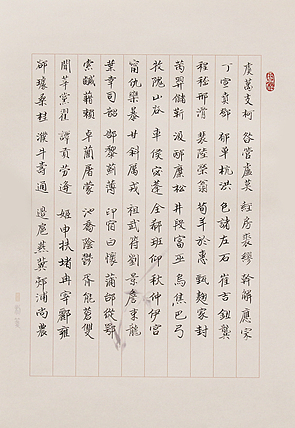 虞萬支柯 昝管盧莫 經房裘繆 幹解應宗
丁宣賁鄧 郁單杭洪 包諸左石 崔吉鈕龔
程嵇邢滑 裴陸榮翁 荀羊於惠 甄麴家封
芮羿儲靳 汲邴糜松 井段富巫 烏焦巴弓
牧隗山谷 車侯宓蓬 全郗班仰 秋仲伊宮
甯仇欒暴 甘鈄厲戎 祖武符劉 景詹束龍
葉幸司韶 郜黎薊薄 印宿白懷 蒲邰從鄂
索咸籍賴 卓藺屠蒙 池喬陰鬱 胥能蒼雙
聞莘黨翟 譚貢勞逄 姬申扶堵 冉宰酈雍
郤璩桑桂 濮牛壽通 邊扈燕冀 郟浦尚農